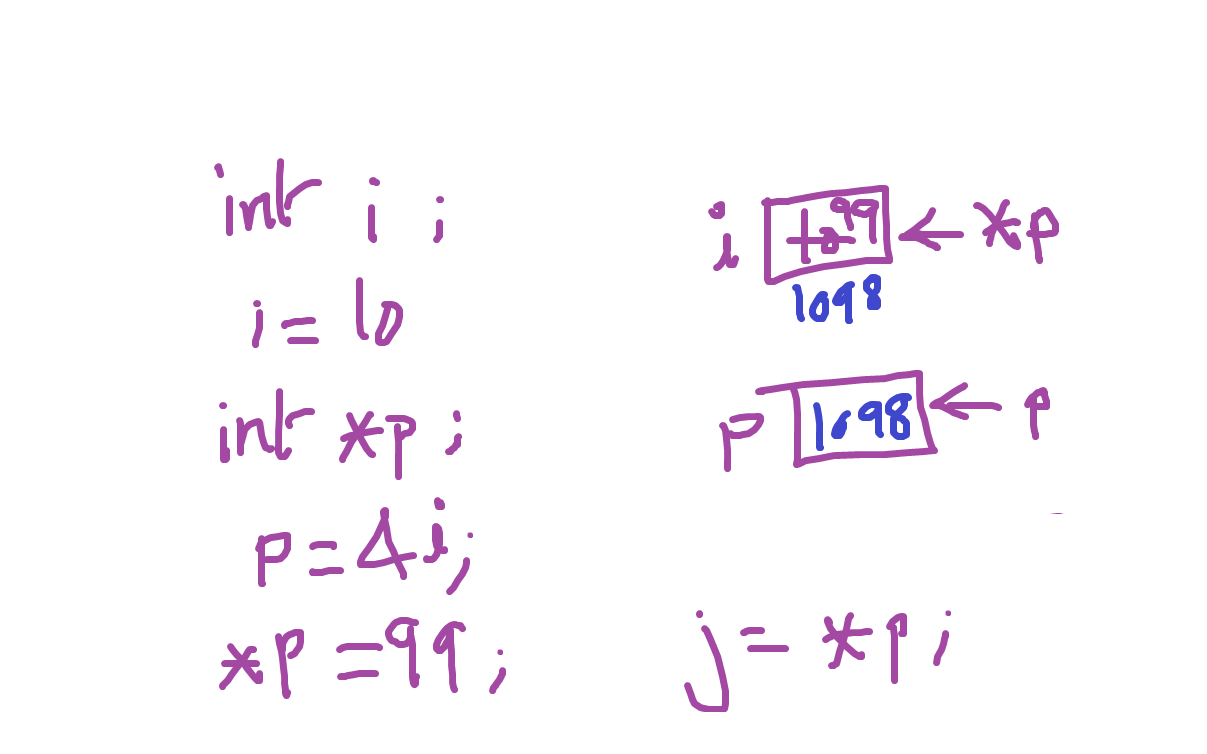 int i ;
i = 10
int *p ;
p = &i;
*p = 99 ;
i 10 99 ← *p
1098
p 1098 ← p
j = *p ;